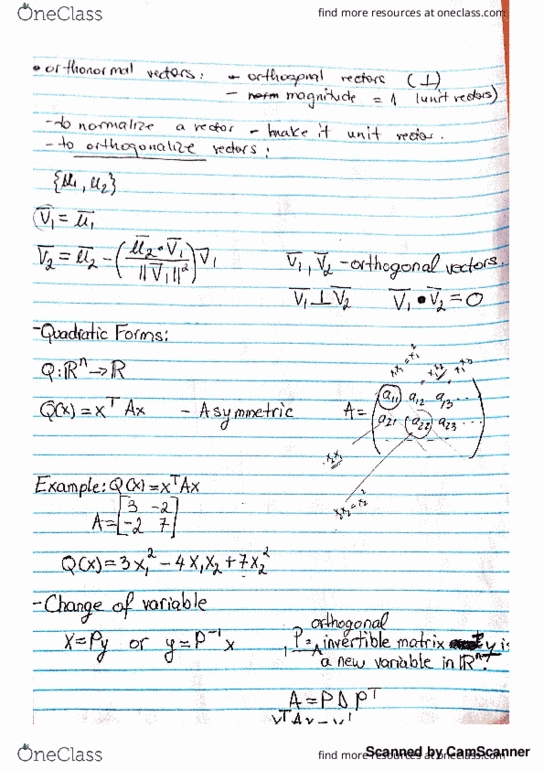 OneClass
find more resources at oneclass.com
• orthonormal vectors: - orthogonal vectors (⊥)
- norm magnitude = 1 (unit vectors)
- to normalize a vector - make it unit vector.
- to orthogonalize vectors:
{u₁, u₂}
V̄₁ = ū₁
V̄₂ = ū₂ - (ū₂•V̄₁ / ||V̄₁||²) V̄₁
V̄₁, V̄₂ - orthogonal vectors.
V̄₁ ⊥ V̄₂ V̄₁ • V̄₂ = 0
- Quadratic Forms:
Q: ℝⁿ → ℝ
Q(x) = xᵀAx - A symmetric
A = (a₁₁ a₁₂ a₁₃ ...
a₂₁ a₂₂ a₂₃ ...)
Example: Q(x) = xᵀAx
A = [3 -2
-2 7]
Q(x) = 3x₁² - 4x₁x₂ + 7x₂²
- Change of variable
x = Py or y = P⁻¹x
orthogonal
P = invertible matrix y is
a new variable in ℝⁿ.
A = PDPᵀ
OneClass
find more resources at oneclass.com
Scanned by CamScanner